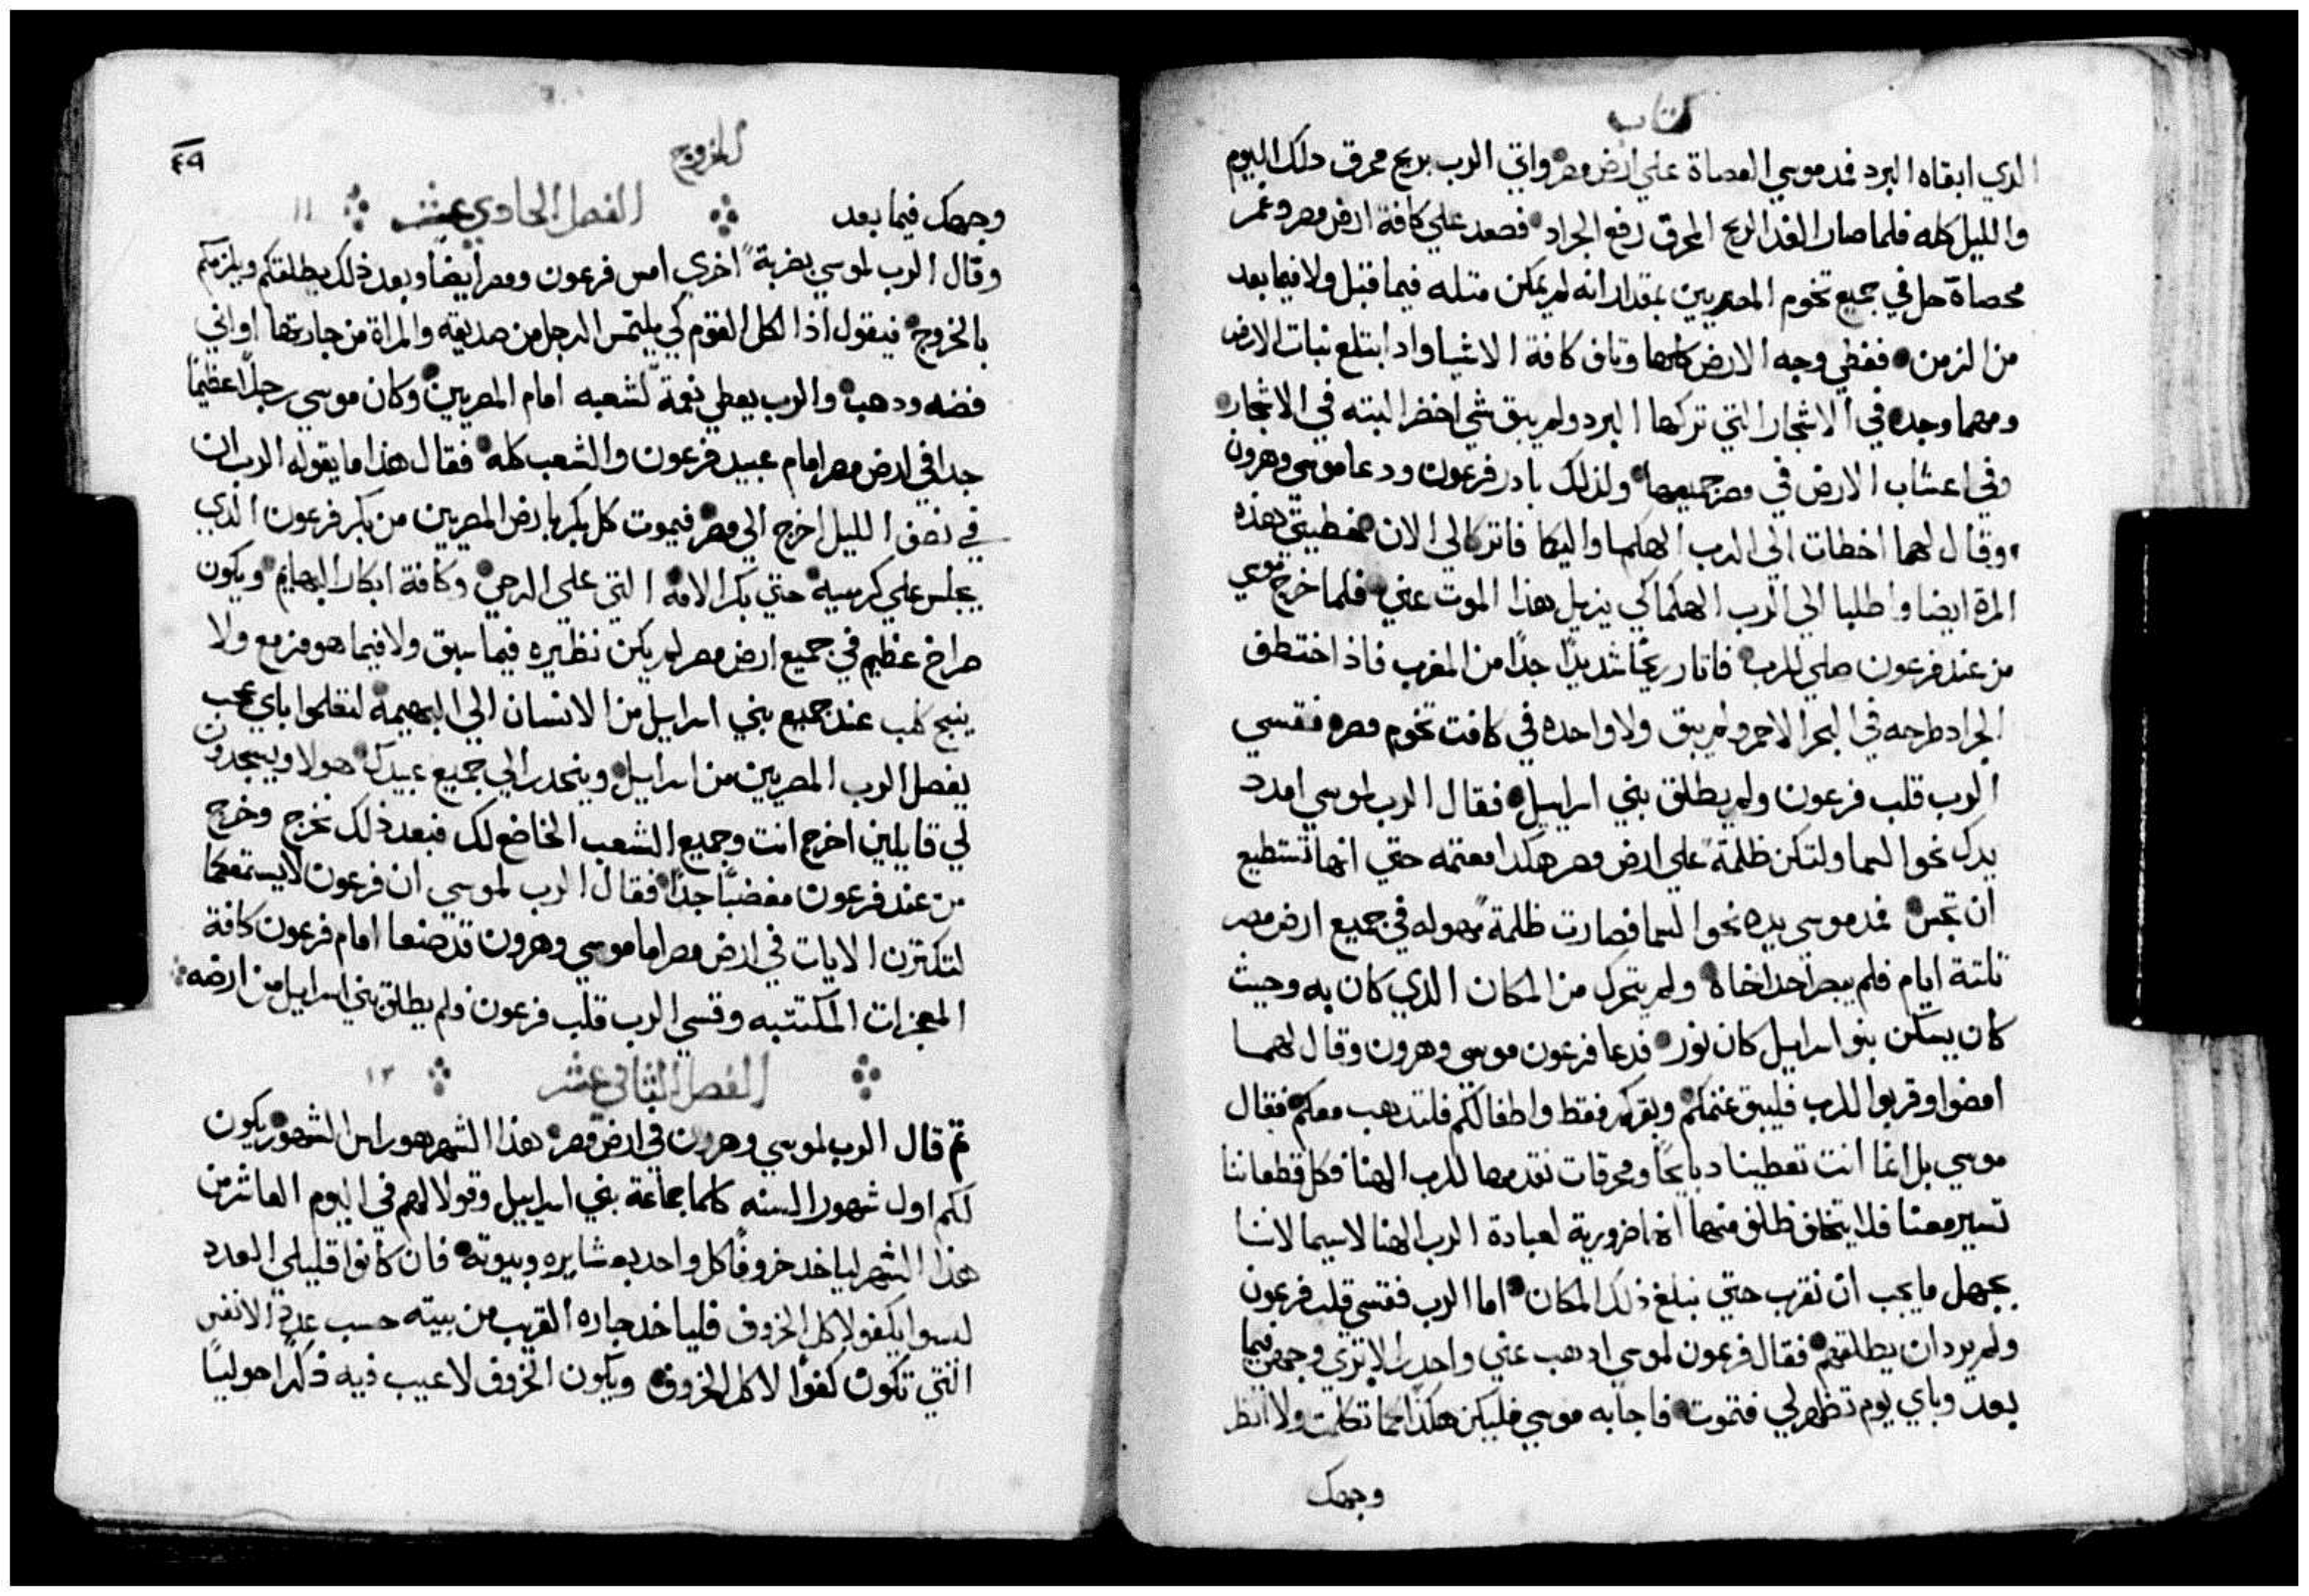 كتاب
الدي ابقاه البرد فمد موسي العصاة علي ارض مصر واتي الرب بريح محرق دلك اليوم
والليل كله فلما صار الغد الريح المحرق رفع الجراد فصعد علي كافة ارض مصر وغمر
محصاة حل في جميع تخوم المصريين بمقدار انه لم يمكن متله فيما قبل ولا فيما بعد
من الزمن فغطي وجه الارض كلها وتاف كافة الاشيا واد ابتلع نبات الارض
ومهما وجده في الاشجار التي تركها البرد ولم يبق شي اخضر البته في الاشجار
وفي اعشاب الارض في مصر جميعها ولذلك بادر فرعون ودعا موسي وهرون
وقال لهما اخطات الي الرب الهكما واليكما فاتركا لي الان خطيتي هذه
المرة ايضا واطلبا الي الرب الهكما كي يزيل هذا الموت عني فلما خرج موسي
من عند فرعون صلي للرب فاتار ريحًا شديدًا جدًا من المغرب فاذ اختطف
الجراد طرحه في البحر الاحمر ولم يبق ولا واحده في كافت تخوم مصر فقسي
الرب قلب فرعون ولم يطلق بني اسراييل فقال الرب لموسي امدد
يدك نحو السما ولتكن ظلمة علي ارض مصر هكدا معتمه حتي انها تستطيع
ان تجس فمد موسي يده نحو السما فصارت ظلمة مهوله في جميع ارض مصر
تلتة ايام فلم يبصر احد اخاه ولم يتحرك من المكان الدي كان به وحيث
كان يسكن بنو اسراييل كان نور فدعا فرعون موسي وهرون وقال لهما
امضوا وقربوا للرب فليبق غنمكم وبقركم فقط واطفالكم فلتدهب معكم فقال
موسي بل اغا انت تعطينا دبايحًا ومحرقات نقدمها للرب الهنا فكل قطعاننا
تسير معنا فلا يتخلف ظلف منها انها ضرورية لعبادة الرب الهنا لاسيما لاننا
بجهل ما يجب ان نقرب حتي نبلغ ذلك المكان اما الرب فقسي قلب فرعون
ولم يرد ان يطلقهم فقال فرعون لموسي ادهب عني واحدر الا تري وجهي فيما
بعد وباي يوم تظهر لي فتموت فاجابه موسي فليكن هكذا كما تكلمت ولا انظر
وجهك
الخروج
٤٩
وجهك فيما بعد الفصل الحادي عشر ١١
وقال الرب لموسي بضربة اخري امس فرعون ومصر ايضًا وبعد ذلك يطلقكم ويلزمكم
بالخروج فيقول اذا لكل القوم كي يلتمس الرجل من صديقه والمراة من جارتها اواني
فضه ودهب والرب يعطي نعمة لشعبه امام المصريين وكان موسي رجلًا عظيمًا
جدا في ارض مصر امام عبيد فرعون والشعب كله فقال هذا ما يقوله الرب ان
في نصف الليل اخرج الي مصر فيموت كل بكر بارض المصريين من بكر فرعون الدي
يجلس علي كرسيه حتي بكر الامة التي علي الرحي وكافة ابكار البهايم ويكون
صراخ عظيم في جميع ارض مصر لم يكن نظيره فيما سبق ولا فيما هو مزمع ولا
ينبح كلب عند جميع بني اسراييل من الانسان الي البهيمة لتعلموا باي عجب
يفصل الرب المصريين من اسراييل وينحدر الي جميع عبيدك هولا ويسجدون
لي قايلين اخرج انت وجميع الشعب الخاضع لك فبعد ذلك نخرج وخرج
من عند فرعون مغضبًا جدًا فقال الرب لموسي ان فرعون لا يستمعكما
لتكترن الايات في ارض مصر اما موسي وهرون قد صنعا امام فرعون كافة
المعجزات المكتتبه وقسي الرب قلب فرعون ولم يطلق بني اسراييل من ارضه
الفصل التاني عشر ١٢
تم قال الرب لموسي وهرون في ارض مصر هذا الشهر هو راس الشهور يكون
لكم اول شهور السنه كلما جماعة بني اسراييل وقولا لهم في اليوم العاشر من
هذا الشهر لياخد خروفًا كل واحد بعشايره وبيوته فان كانوا قليلي العدد
ليسوا بكفو لاكل الخروف فلياخد جاره القريب من بيته حسب عدة الانفس
التي تكون كفوًا لاكل الخروف ويكون الخروف لا عيب فيه ذكرًا حوليًا